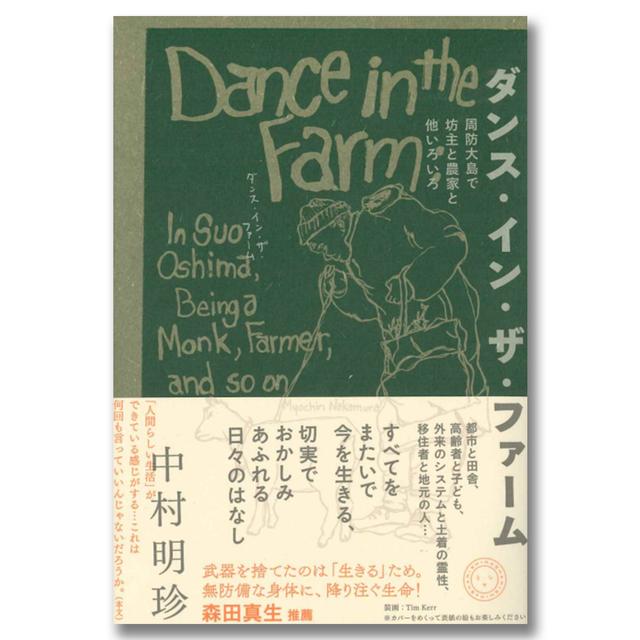 Dance in the
Farm
ダンス・イン・ザ・
ファーム
In Suo-
Oshima,
Being a
Monk, Farmer,
and so on
Myochin Nakamura
ダンス・イン・ザ・ファーム
周防大島で
坊主と農家と
他いろいろ
都市と田舎、
高齢者と子ども、
外来のシステムと土着の霊性、
移住者と地元の人…
すべてを
またいで
今を生きる、
切実で
おかしみ
あふれる
日々のはなし
中村明珍
「人間らしい生活」が、
できている感じがする…これは
何回も言っていいんじゃないだろうか。(本文)
武器を捨てたのは「生きる」ため。
無防備な身体に、降り注ぐ生命!
森田真生 推薦
装画:Tim Kerr
※カバーをめくって表紙の絵もお楽しみください